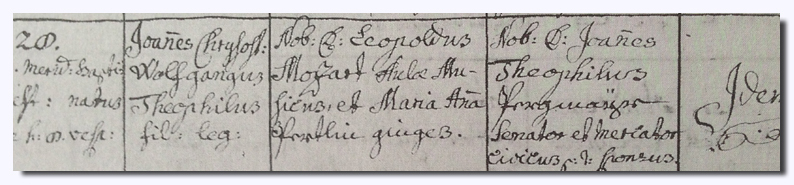 28.
. merid: Baptis
est : natus
h: 8. vesp:
Joañes Chrysost:
Wolfgangus
Theophilus
fil: leg:
Nob: D: Leopoldus
Mozart Aulæ Mu-
sicus, et Maria Aña
Pertlin giuges.
Nob: D: Joañes
Theophilus
Pergmayr
Senator et Mercator
civicus p: t: sponsus.
Idem